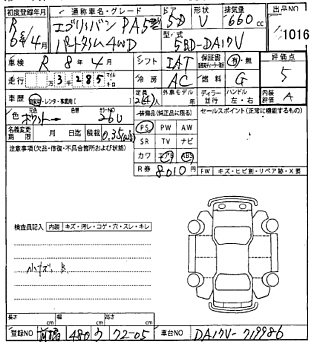 初度登録年月 通称車名・グレード ドア 形状 排気量 出品NO
R 6年/4月 エブリィバン PA 5D V 660cc 1016
パートタイム4WD 型式 5BD-DA17V
車検 R 8年4月 シフト IAT 保証書 有・無 評価点
走行 3285 冷房 AC 燃料 G 5
車歴 自・レンタ・事業用( ) 定員 2(4)人 外車モデル 年 ディーラー 並行 ハンドル 左・右 内装評価 A
色 ホワイト 26U 装備品(純正品に限る) セールスポイント(正常に機能するもの)
名義変更期限 月 日迄 積載 0.35
注意事項欄(欠品・修復・不具合箇所および状態)
PS PW AW
SR TV ナビ
カワ エアB ABS
R券 8010円
FW キズ・ヒビ割・リペア跡・X要
検査員記入 内装 キズ・汚レ・コゲ・穴・スレ・キレ
小キズ
登録NO 480 72-05 車台NO DA17V-719986